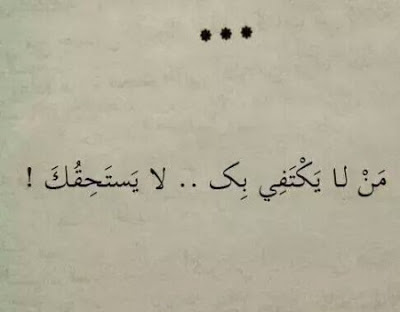 ***
مَنْ لا يَكْتَفِي بِك .. لا يَستَحِقُكَ !